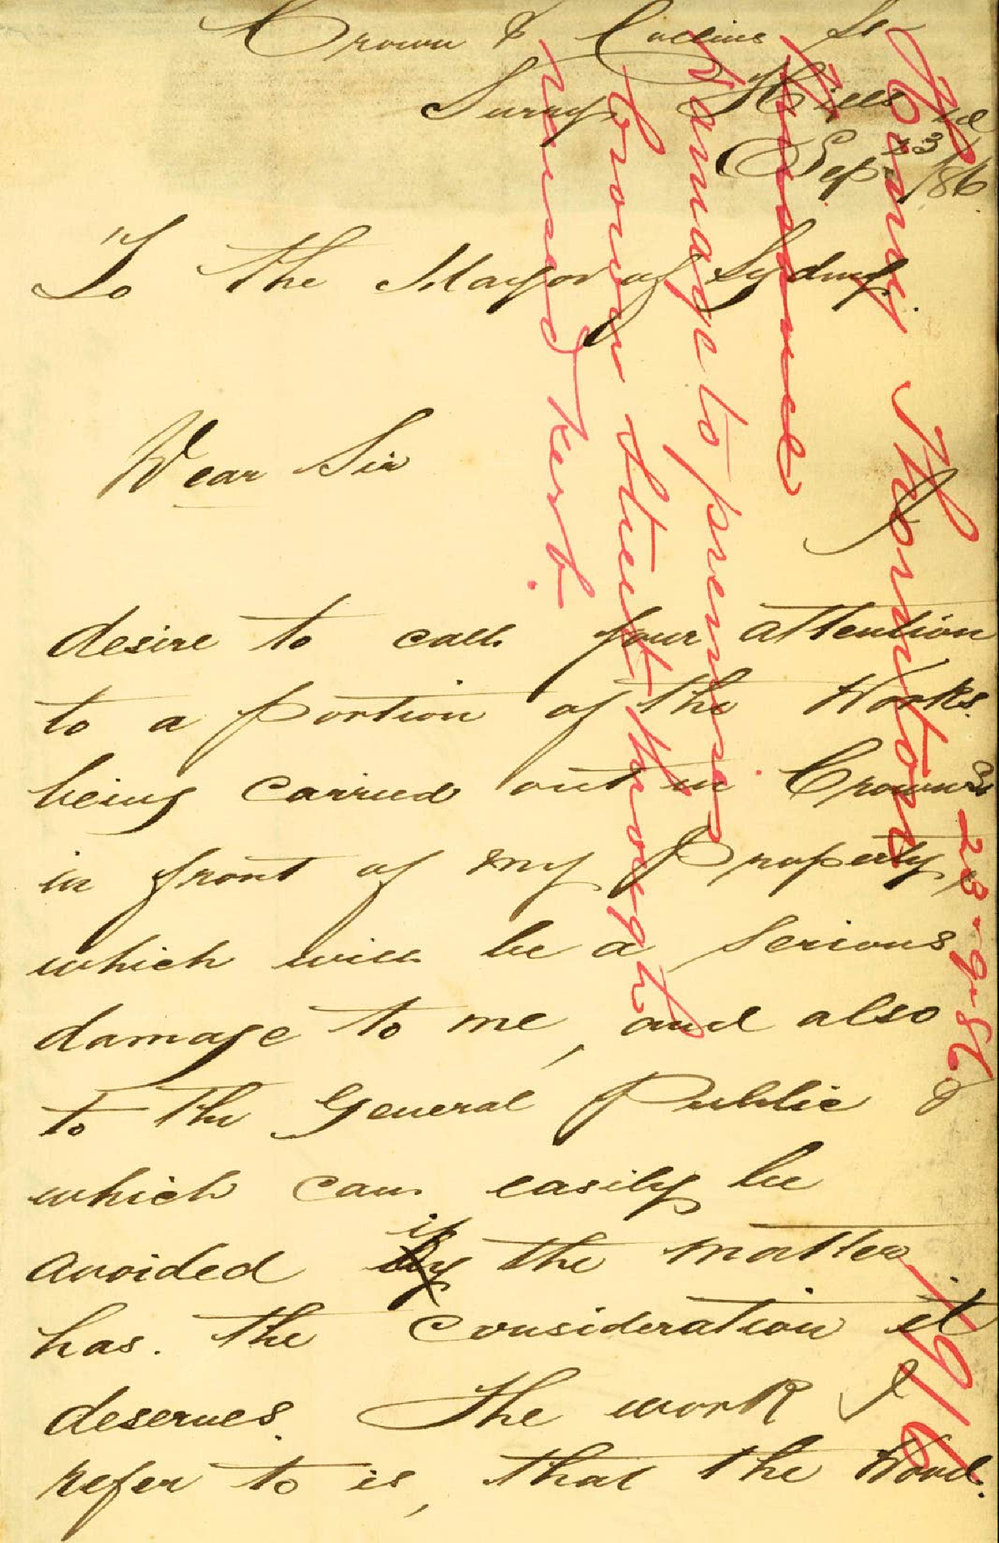 Crown & Collins St
Surry Hills
Sep 23rd /86
To the Mayor of Sydney.
Dear Sir
I
desire to call your attention
to a Portion of the Works.
being carried out in Crown St
in front of my Property,
which will be a serious
damage to me, and also
to the General Public &
which can easily be
avoided if the matter
has. the consideration it
deserves. The work I
refer to is, that the Wood.
Henry Thornton
damage to premises
Crown Street through
raised Kerb.
23-9-86
1916